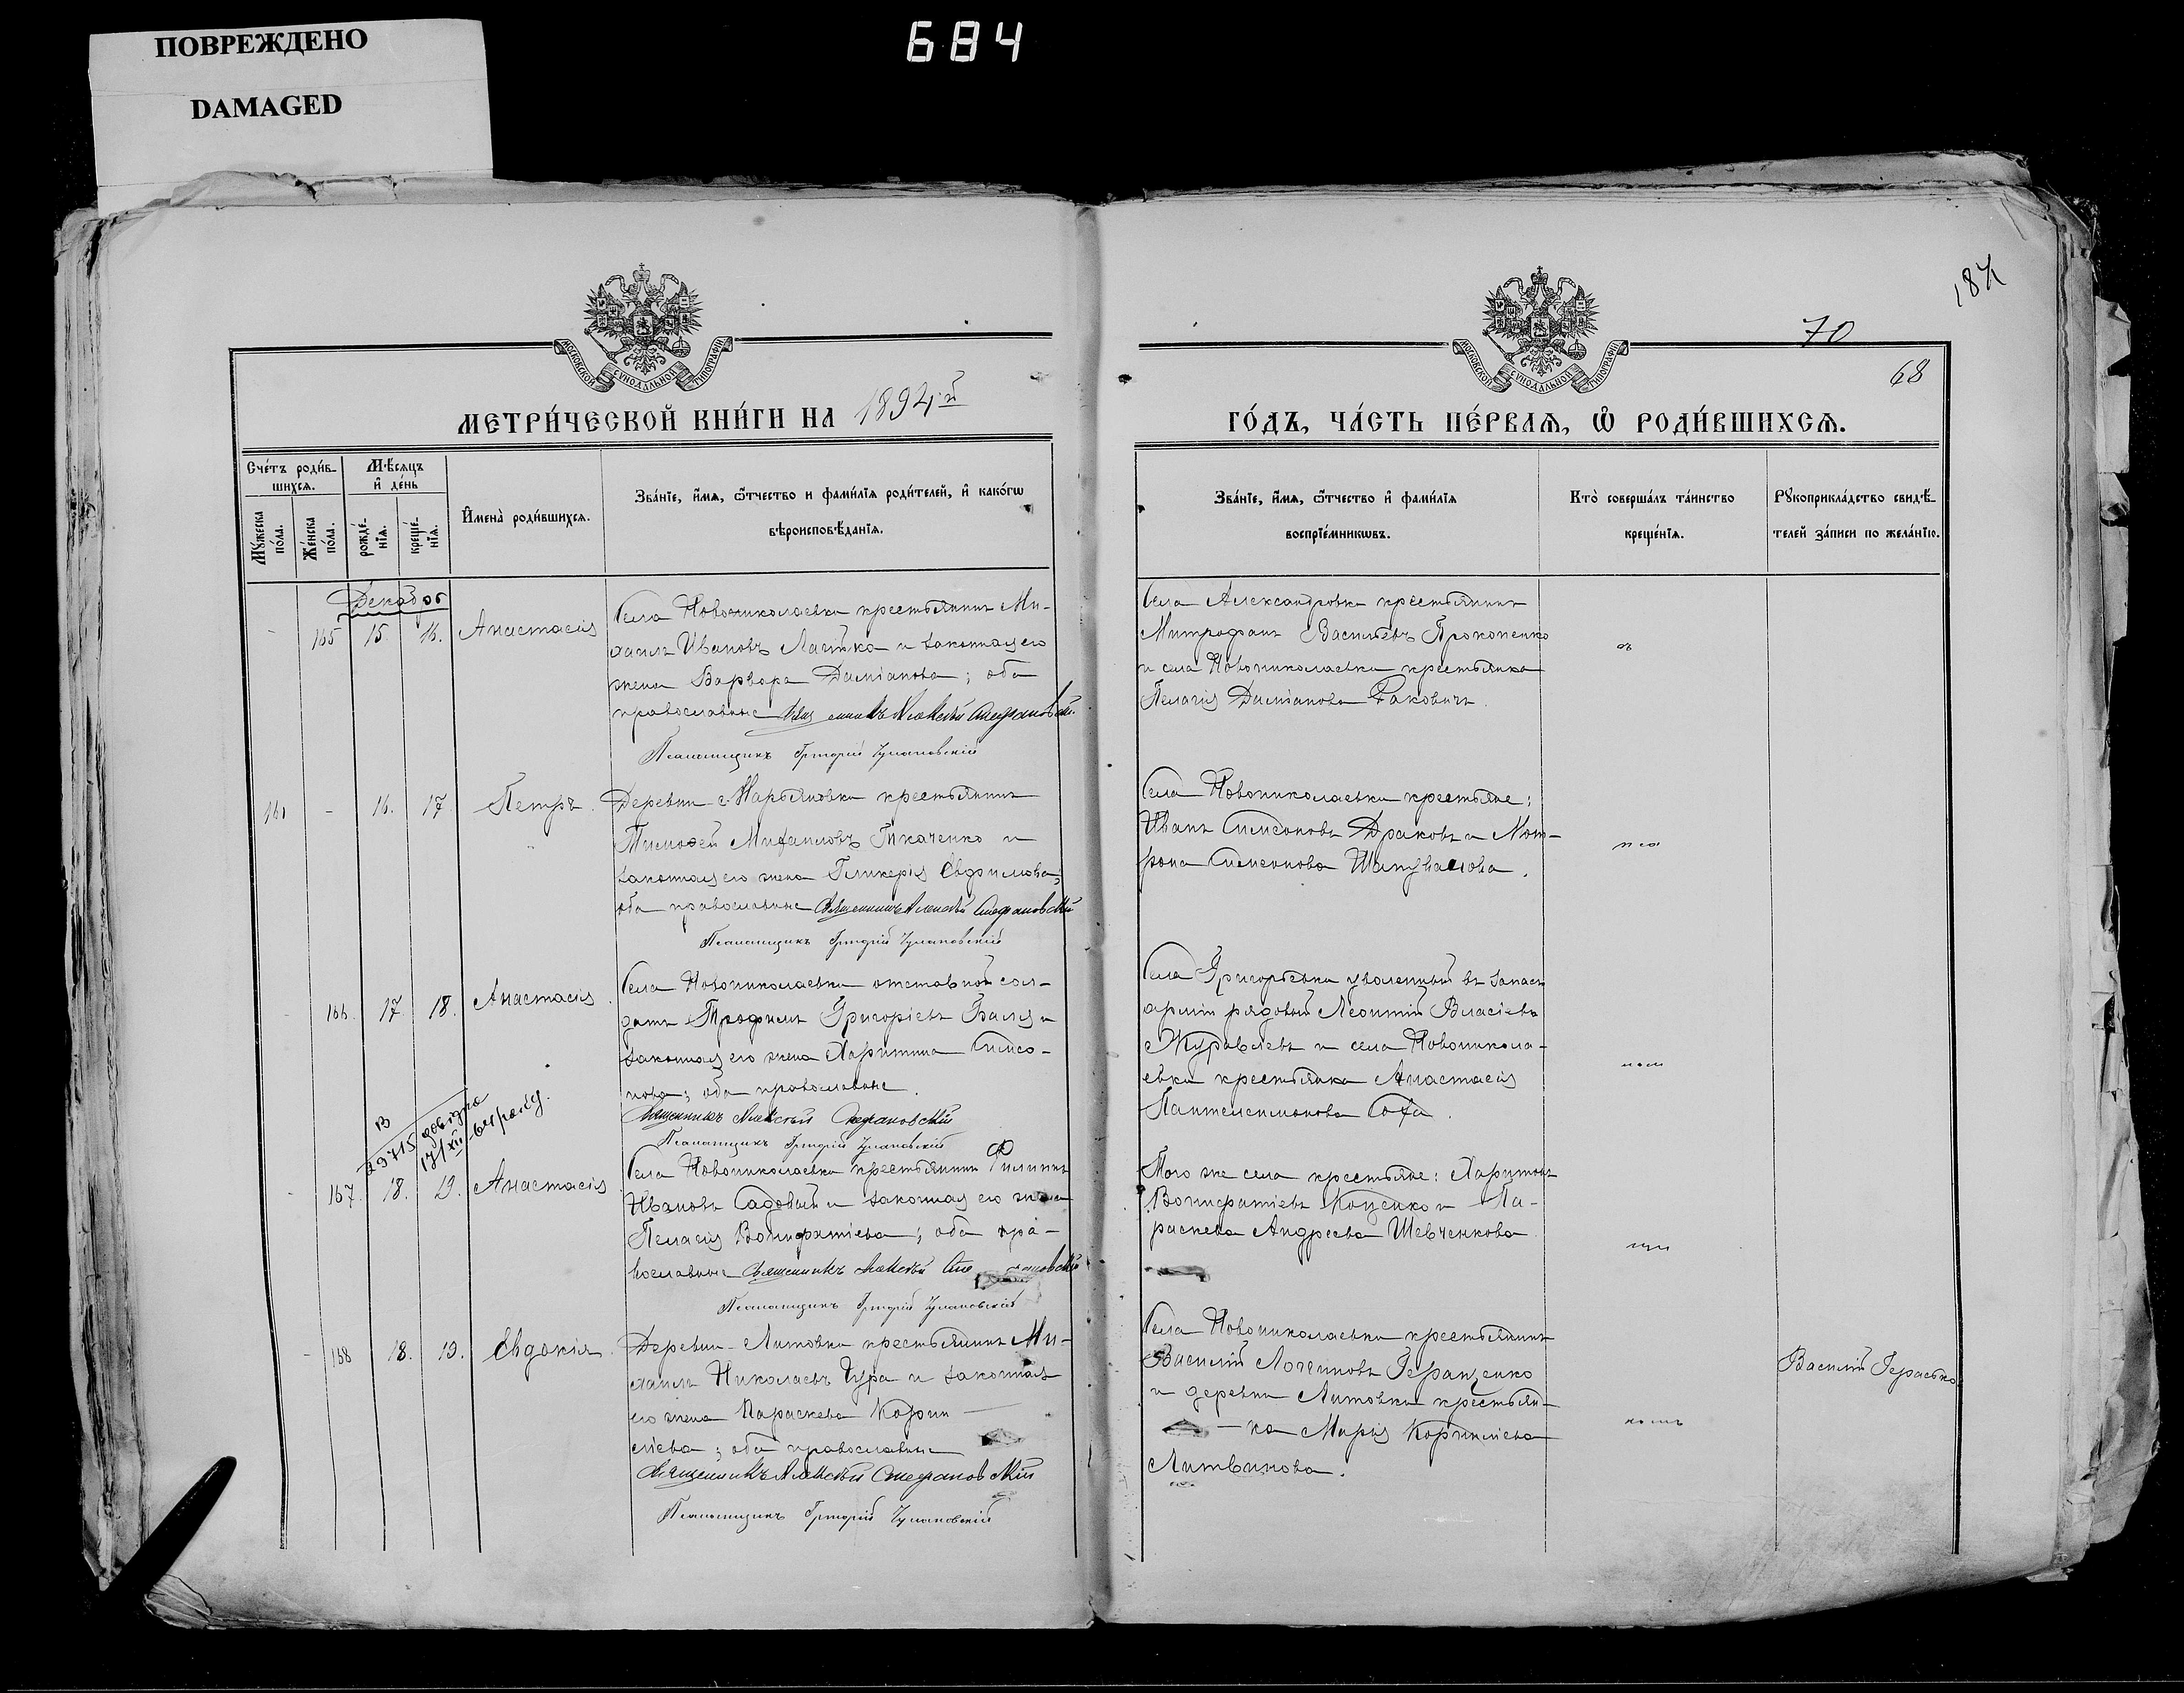 ПОВРЕЖДЕНО
DAMAGED
684
187
70
68
МОСКОВСКОЙ СѴНОДАЛЬНОЙ ТИПОГРАФІИ
МОСКОВСКОЙ СѴНОДАЛЬНОЙ ТИПОГРАФІИ
МЕТРИ́ЧЕСКОЙ КНИ́ГИ НА 1894й
ГО́ДЪ, ЧА́СТЬ ПЕ́РВАѦ, Ѽ РОДИ́ВШИХСѦ.
Сче́тъ роди́в-
шихсѧ.
Мѣ́сѧцъ
и де́нь
Мꙋ́жеска
по́ла.
Же́нска
по́ла.
рожде́-
нїѧ.
креще́-
нїѧ.
И҆мена̀ роди́вшихсѧ.
Зва́нїе, и҆́мѧ, ѻ҆́тчество и фами́лїѧ роди́телей, и҆ како́гѡ
вѣроисповѣ́данїѧ.
Зва́нїе, и҆́мѧ, ѻ҆́тчество и҆ фами́лїѧ
воспрїе́мникѡвъ.
Кто̀ соверша́лъ та́инство
креще́нїѧ.
Рꙋкоприкла́дство свидѣ́-
телей за́писи по жела́нїю.
Декабрь
- 165 15. 16. Анастасія
Села Новониколаевки крестьянинъ Ми-
хаилъ Ивановъ и законная его
жена Варвара Даміанова; оба
православные Священникъ Алексѣй Стефановскій
Псаломщикъ Григорій
Села Александровки крестьянинъ
Митрофанъ Васильевъ Прокопенко
и села Новониколаевки крестьянка
Пелагія Даміанова Ракович
161 - 16. 17 Петръ.
Деревни Марьяновки крестьянинъ
Тимофей Михаиловъ Ткаченко и
законная его жена Гликерія Евфимова;
оба православные Священникъ Алексѣй Стефановскій
Псаломщикъ Григорій
Села Новониколаевки крестьяне:
Иванъ Симеоновъ Драковъ и Мот-
рона Симеонова Шаповалова.
- 166. 17 18. Анастасія
Села Новониколаевки отставной сол-
датъ Трофимъ Григоріевъ и
законная его жена Харитина Симео-
нова; оба православные.
Священникъ Алексѣй Стефановскій
Псаломщикъ Григорій
Села Григорьевки уволенный въ запасъ
арміи рядовый Леонтій Власіевъ
Журавлевъ и села Новоникола-
евки крестьянка Анастасія
Пантелеимонова
В
29715 довідка
17/XII-64 року.
- 167. 18. 19. Анастасія
Села Новониколаевки крестьянинъ Филиппъ
Ивановъ Садовый и законная его жена
Пелагія Вонифатіева; оба пра-
вославные Священникъ Алексѣй Стефановскій
Псаломщикъ Григорій
Того же села крестьяне: Харитонъ
Вонифатіевъ Коценко и Па-
раскева Андреева Шевченкова
- 168 18. 19. Евдокія.
Деревни Литовки крестьянинъ Ми-
хаилъ Николаевъ Чура и законная
его жена Параскева Корни-
ліева; оба православные
Священникъ Алексѣй Стефановскій
Псаломщикъ Григорій
Села Новониколаевки крестьянинъ
Василій Логгиновъ
и деревни Литовки крестьян-
ка Марія Корниліева
Литвинова.
Василій Герасько